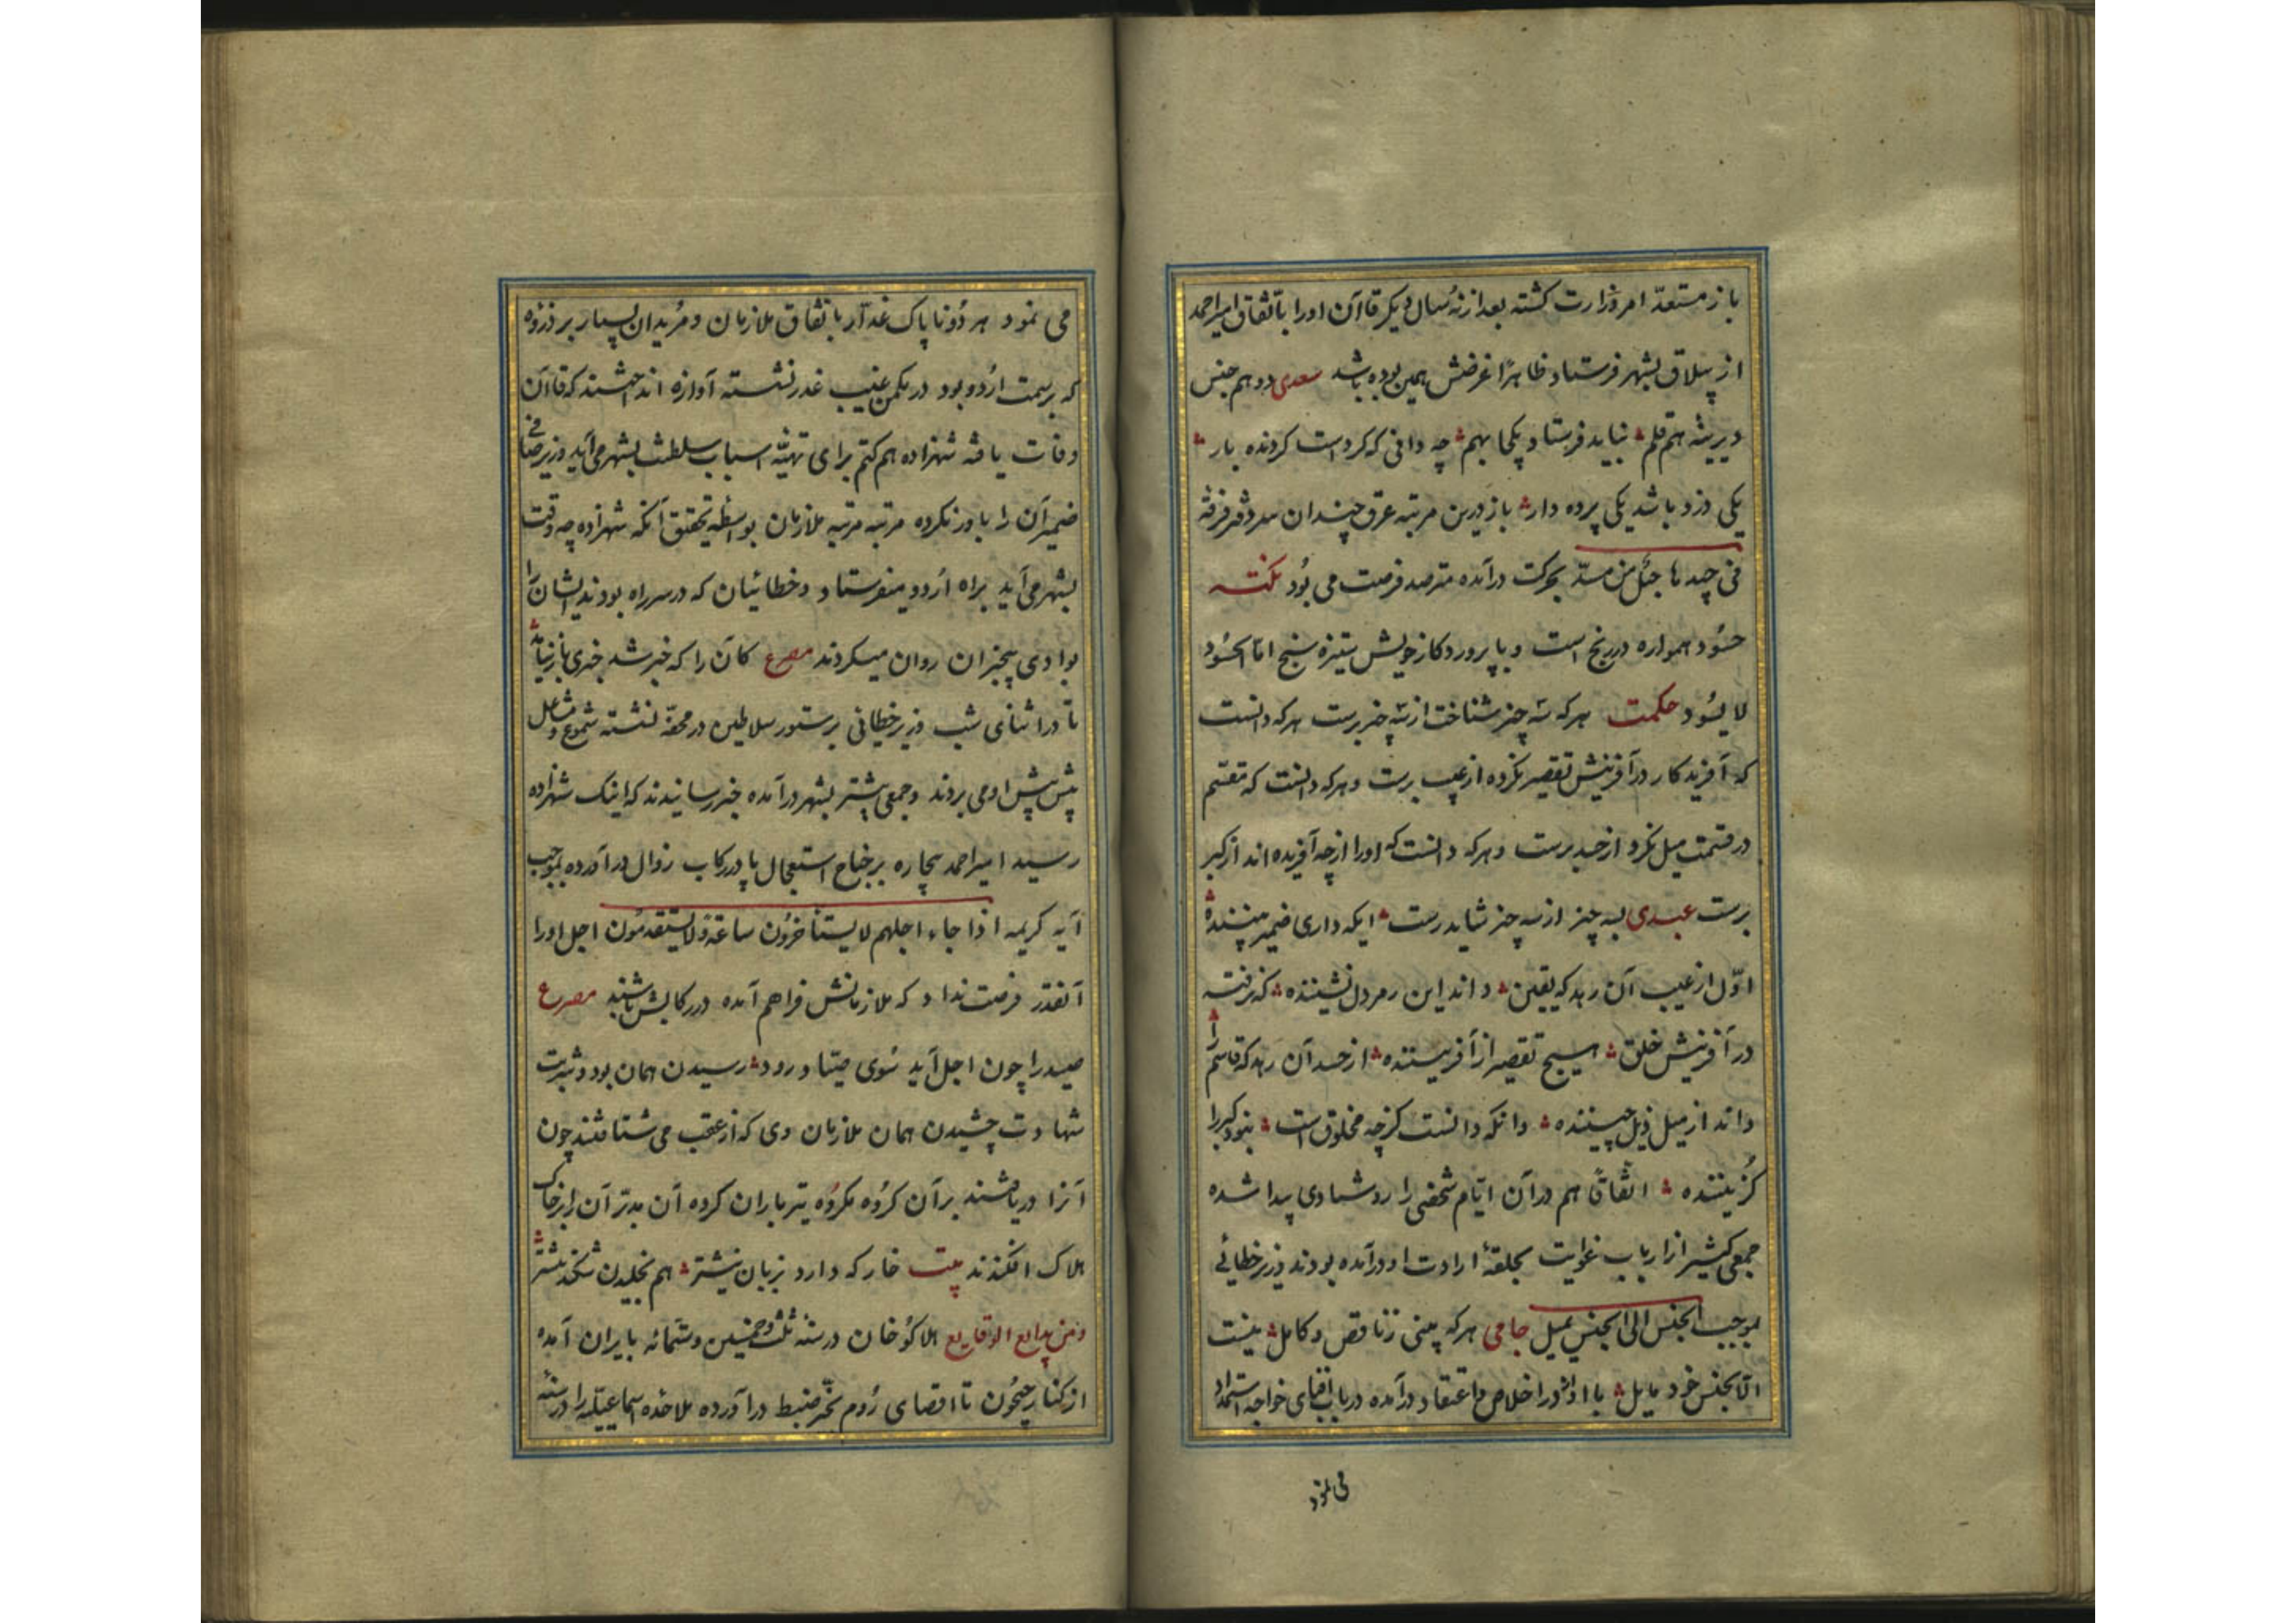 باز مستعدّ امر وزارت کشته بعد از نه سال دیکر قاآن اورا باتفاق امیر احمد
از ییلاق بشهر فرستاد ظاهرًا غرضش همین بوده باشد سعدی دو هم جنس
دیرینه هم قلم نباید فرستاد یکجا بهم چه دانی که کردست کردنده یار
یکی دزد باشد یکی پرده دار باز درین مرتبه عرق
فی جیدها حبل من مسد بحرکت درآمده مترصد فرصت می بود نکته
حسود همواره در رنج است و با پروردکار خویش ستیزه سنج امّا الحسود
لا یسود حکمت هر که سه چیز شناخت از سه چیز برست هر که دانست
که آفریدکار در آفرینش تقصیر نکرده از عیب برست و هر که دانست که مقسّم
در قسمت میل نکرد از حسد برست و هر که دانست که اورا از چه آفریده اند از کبر
برست عبدی بسه چیز از سه چیز شاید رست ایکه داری ضمیر بیننده
اوّل از عیب آن رهد که یقین داند این رمز دل نشیننده که نرفته
در آفرینش خلق هیچ تقصیر از آفریننده از حسد آن رهد که قاسم را
داند از میل ذیل چیننده وانکه دانست کز چه مخلوق است نبود کبر را
کزیننده اتفاقاً هم در آن ایّام شخصی را رو شیادی پیدا شده
جمعی کثیر از ارباب غوایت بحلقهٔ ارادت او درآمده بودند وزیر خطائی
بموجب الجنس الی الجنس یمیل جامی هر که بینی ز ناقص و کامل نیست
الّا بجنس خود مایل با او از در اخلاص و اعتقاد درآمده در باب افنای خواجه استمداد
می نمود
می نمود هر دو ناپاک غدّار باتفاق ملازمان و مریدان بسیار بر ذروه
که بر سمت اردو بود در مکمن غیب غدر نشسته آوازه انداختند که قاآن
وفات یافته شهزاده هم کتم برای تهیّه اسباب سلطنت بشهر می آید وزیر صافی
ضمیر آن را باور نکرده مرتبه مرتبه ملازمان بواسطه تحقیق آنکه شهزاده چه وقت
بشهر می آید براه اردو میفرستاد و خطائیان که در سر راه بودند ایشان را
بوادی بیخبران روان میکردند مصرع کان را که خبر شد خبری باز نیامد
تا در اثنای شب وزیر خطائی بر ستور سلاطین در محفّه نشسته شموع و مشاعل
پیش پیش او می بردند و جمعی پیشتر بشهر درآمده خبر رسانیدند که اینک شهزاده
رسید امیر احمد بیچاره بر جناح استعجال پا در رکاب زوال درآورده بموجب
آیه کریمه اذا جاء اجلهم لا یستأخرون ساعة ولا یستقدمون اجل اورا
آنقدر فرصت نداد که ملازمانش فراهم آمده در رکابش باشند مصرع
صید را چون اجل آید سوی صیّاد رود رسیدن همان بود و شربت
شهادت چشیدن همان ملازمان وی که از عقب می شتافتند چون
آنرا دریافتند بر آن کروه مکروه تیر باران کرده آن بدتر آن را بر خاک
هلاک افکندند بیت خار که دارد زبان نیشتر هم بخلیدن شکند بیشتر
ومن بدایع الوقایع هلاکوخان در سنه ثلث و خمسین و ستمائه بایران آمده
از کنار جیحون تا اقصای روم بحیّز ضبط درآورده ملاحده اسماعیلیه را در سنه